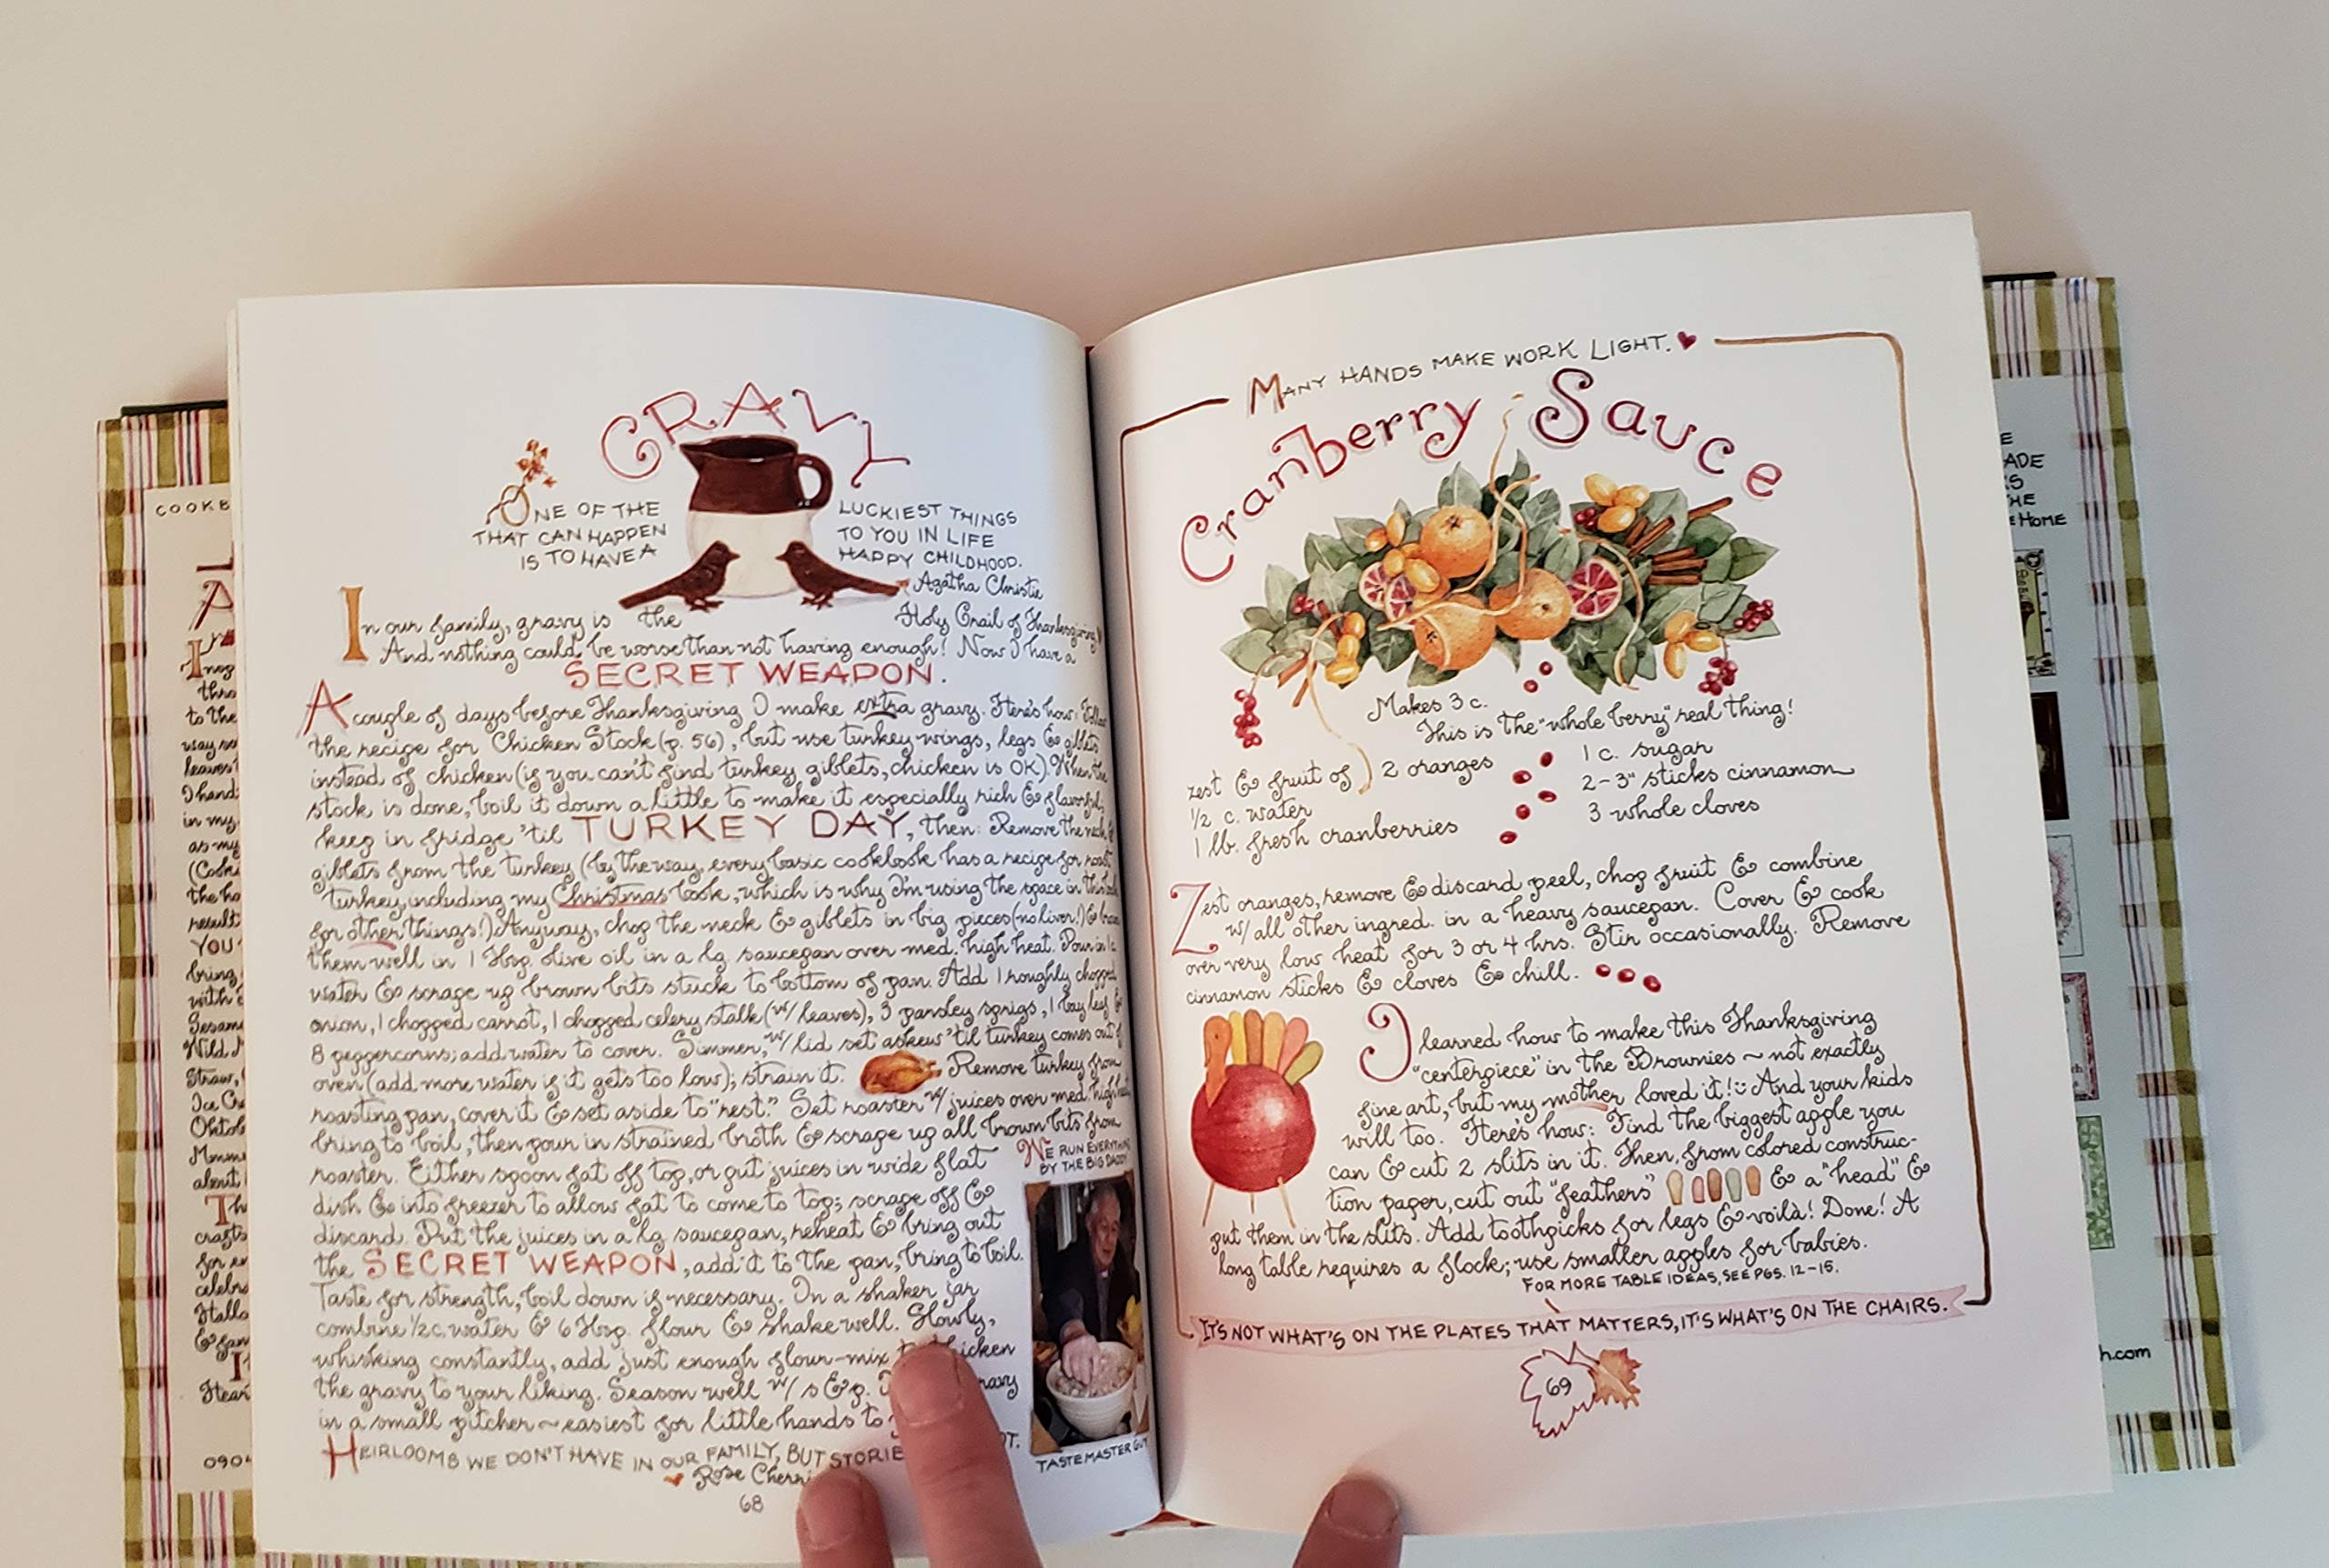 GRAVY
ONE OF THE LUCKIEST THINGS
THAT CAN HAPPEN TO YOU IN LIFE
IS TO HAVE A HAPPY CHILDHOOD.
Agatha Christie
In our family, gravy is the Holy Grail of Thanksgiving
And nothing could be worse than not having enough! Now I have a
SECRET WEAPON.
A couple of days before Thanksgiving I make extra gravy. Here's how: Follow
the recipe for Chicken Stock (p. 56), but use turkey wings, legs & giblets
instead of chicken (if you can't find turkey giblets, chicken is OK). When the
stock is done, boil it down a little to make it especially rich & flavorful;
keep in fridge 'til TURKEY DAY, then: Remove the neck &
giblets from the turkey (by the way, every basic cookbook has a recipe for roast
turkey, including my Christmas book, which is why I'm using the space in this book
for other things!) Anyway, chop the neck & giblets in big pieces (no liver!) & brown
them well in 1 tbsp. olive oil in a lg saucepan over med. high heat. Pour in 1 c.
water & scrape up brown bits stuck to bottom of pan. Add 1 roughly chopped
onion, 1 chopped carrot, 1 chopped celery stalk (w/ leaves), 3 parsley sprigs, 1 bay leaf &
8 peppercorns; add water to cover. Simmer, w/ lid set askew 'til turkey comes out of
oven (add more water if it gets too low); strain it. Remove turkey from
roasting pan, cover it & set aside to "rest." Set roaster w/ juices over med. high heat
bring to boil, then pour in strained broth & scrape up all brown bits from
roaster. Either spoon fat off top, or put juices in wide flat
dish & into freezer to allow fat to come to top; scrape off &
discard. Put the juices in a lg saucepan, reheat & bring out
the SECRET WEAPON, add it to the pan, bring to boil.
Taste for strength, boil down if necessary. In a shaker jar
combine ½ c. water & 6 tbsp. flour & shake well. Slowly,
whisking constantly, add just enough flour-mix
the gravy to your liking. Season well w/ s & p.
in a small pitcher ~ easiest for little hands to
WE RUN EVERYTHING
BY THE BIG DADDY
TASTEMASTER GUY
HEIRLOOMS WE DON'T HAVE IN OUR FAMILY, BUT
Rose
68
MANY HANDS MAKE WORK LIGHT.
Cranberry Sauce
Makes 3 c.
This is the "whole berry" real thing!
zest & fruit of 2 oranges
½ c. water
1 lb. fresh cranberries
1 c. sugar
2-3" sticks cinnamon
3 whole cloves
Zest oranges, remove & discard peel, chop fruit & combine
w/ all other ingred. in a heavy saucepan. Cover & cook
over very low heat for 3 or 4 hrs. Stir occasionally. Remove
cinnamon sticks & cloves & chill.
I learned how to make this Thanksgiving
"centerpiece" in the Brownies ~ not exactly
fine art, but my mother loved it! And your kids
will too. Here's how: Find the biggest apple you
can & cut 2 slits in it. Then, from colored construc-
tion paper, cut out "feathers" & a "head" &
put them in the slits. Add toothpicks for legs & voilà! Done! A
long table requires a flock; use smaller apples for babies.
FOR MORE TABLE IDEAS, SEE PGS. 12-15.
IT'S NOT WHAT'S ON THE PLATES THAT MATTERS, IT'S WHAT'S ON THE CHAIRS.
69
HOME